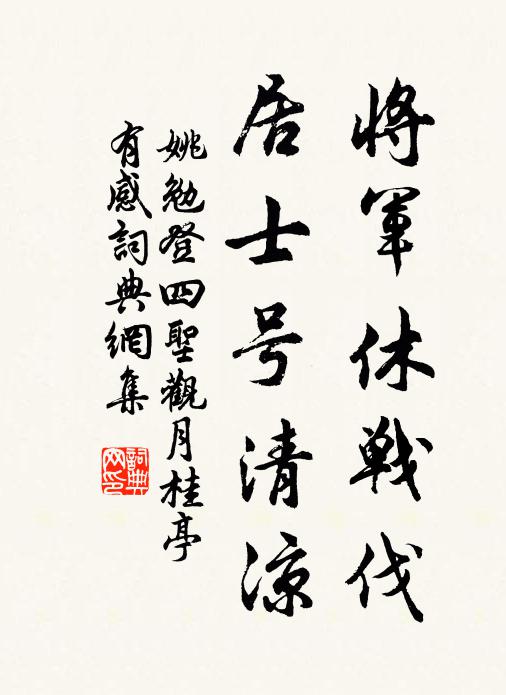 将軍休戦伐
居士号清涼
姚勉登四聖觀月桂亭
有感詞典網集
詞典
网印